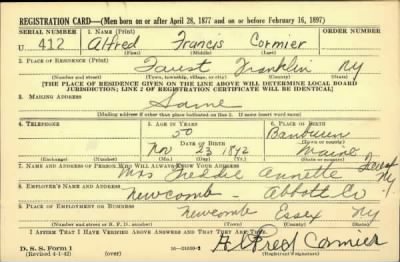 REGISTRATION CARD—(Men born on or after April 28, 1877 and on or before February 16, 1897)
SERIAL NUMBER 1. NAME (Print) ORDER NUMBER
U 412 Alfred Francis Cormier
(First) (Middle) (Last)
2. PLACE OF RESIDENCE (Print)
Faust Franklin NY
(Number and street) (Town, township, village, or city) (County) (State)
[THE PLACE OF RESIDENCE GIVEN ON THE LINE ABOVE WILL DETERMINE LOCAL BOARD
JURISDICTION; LINE 2 OF REGISTRATION CERTIFICATE WILL BE IDENTICAL]
3. MAILING ADDRESS
Same
[Mailing address if other than place indicated on line 2. If same insert word same]
4. TELEPHONE 5. AGE IN YEARS 6. PLACE OF BIRTH
50
DATE OF BIRTH (Town or county)
Nov 23 1892 Maine
7. NAME AND ADDRESS OF PERSON WHO WILL ALWAYS KNOW YOUR ADDRESS
Mrs Freddie Annette Faust NY
8. EMPLOYER'S NAME AND ADDRESS
Newcomb - Abbott Co
9. PLACE OF EMPLOYMENT OR BUSINESS
Newcomb Essex NY
(Number and street or R. F. D. number) (Town) (County) (State)
I AFFIRM THAT I HAVE VERIFIED ABOVE ANSWERS AND THAT THEY ARE TRUE.
D. S. S. Form 1 Alfred Cormier
(Revised 4-1-42) (over) (Registrant's signature)